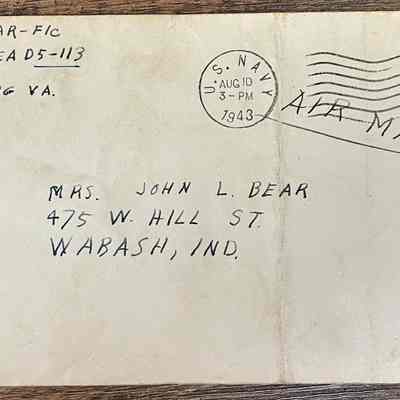 AR-F1C
EA D5-113
G VA.
U.S. NAVY
AUG 10
3-PM
1943
AIR MA
MRS. JOHN L. BEAR
475 W. HILL ST.
WABASH, IND.